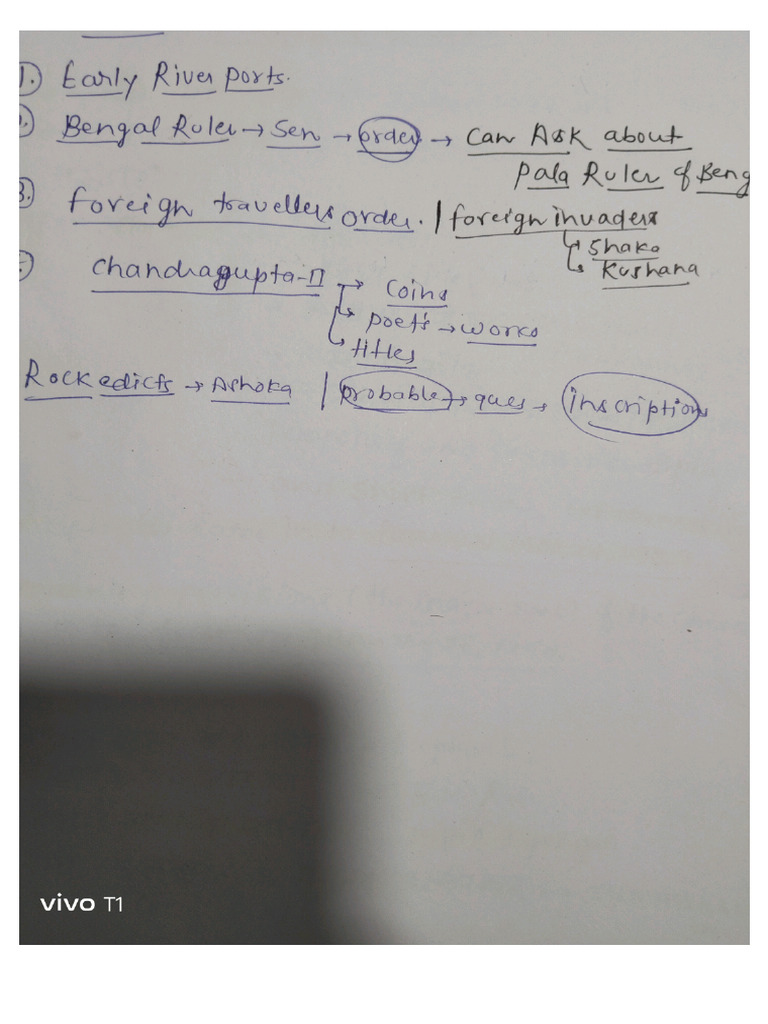 1. Early River Ports.
2. Bengal Ruler → Sen → order → Can Ask about
Pala Ruler of Beng
3. foreign travellers order. / foreign invaders
→ Shaka
→ Kushana
Chandragupta-II → Coins
→ Poet's → works
→ titles
Rock edicts → Ashoka / probable → ques → inscriptions
vivo T1